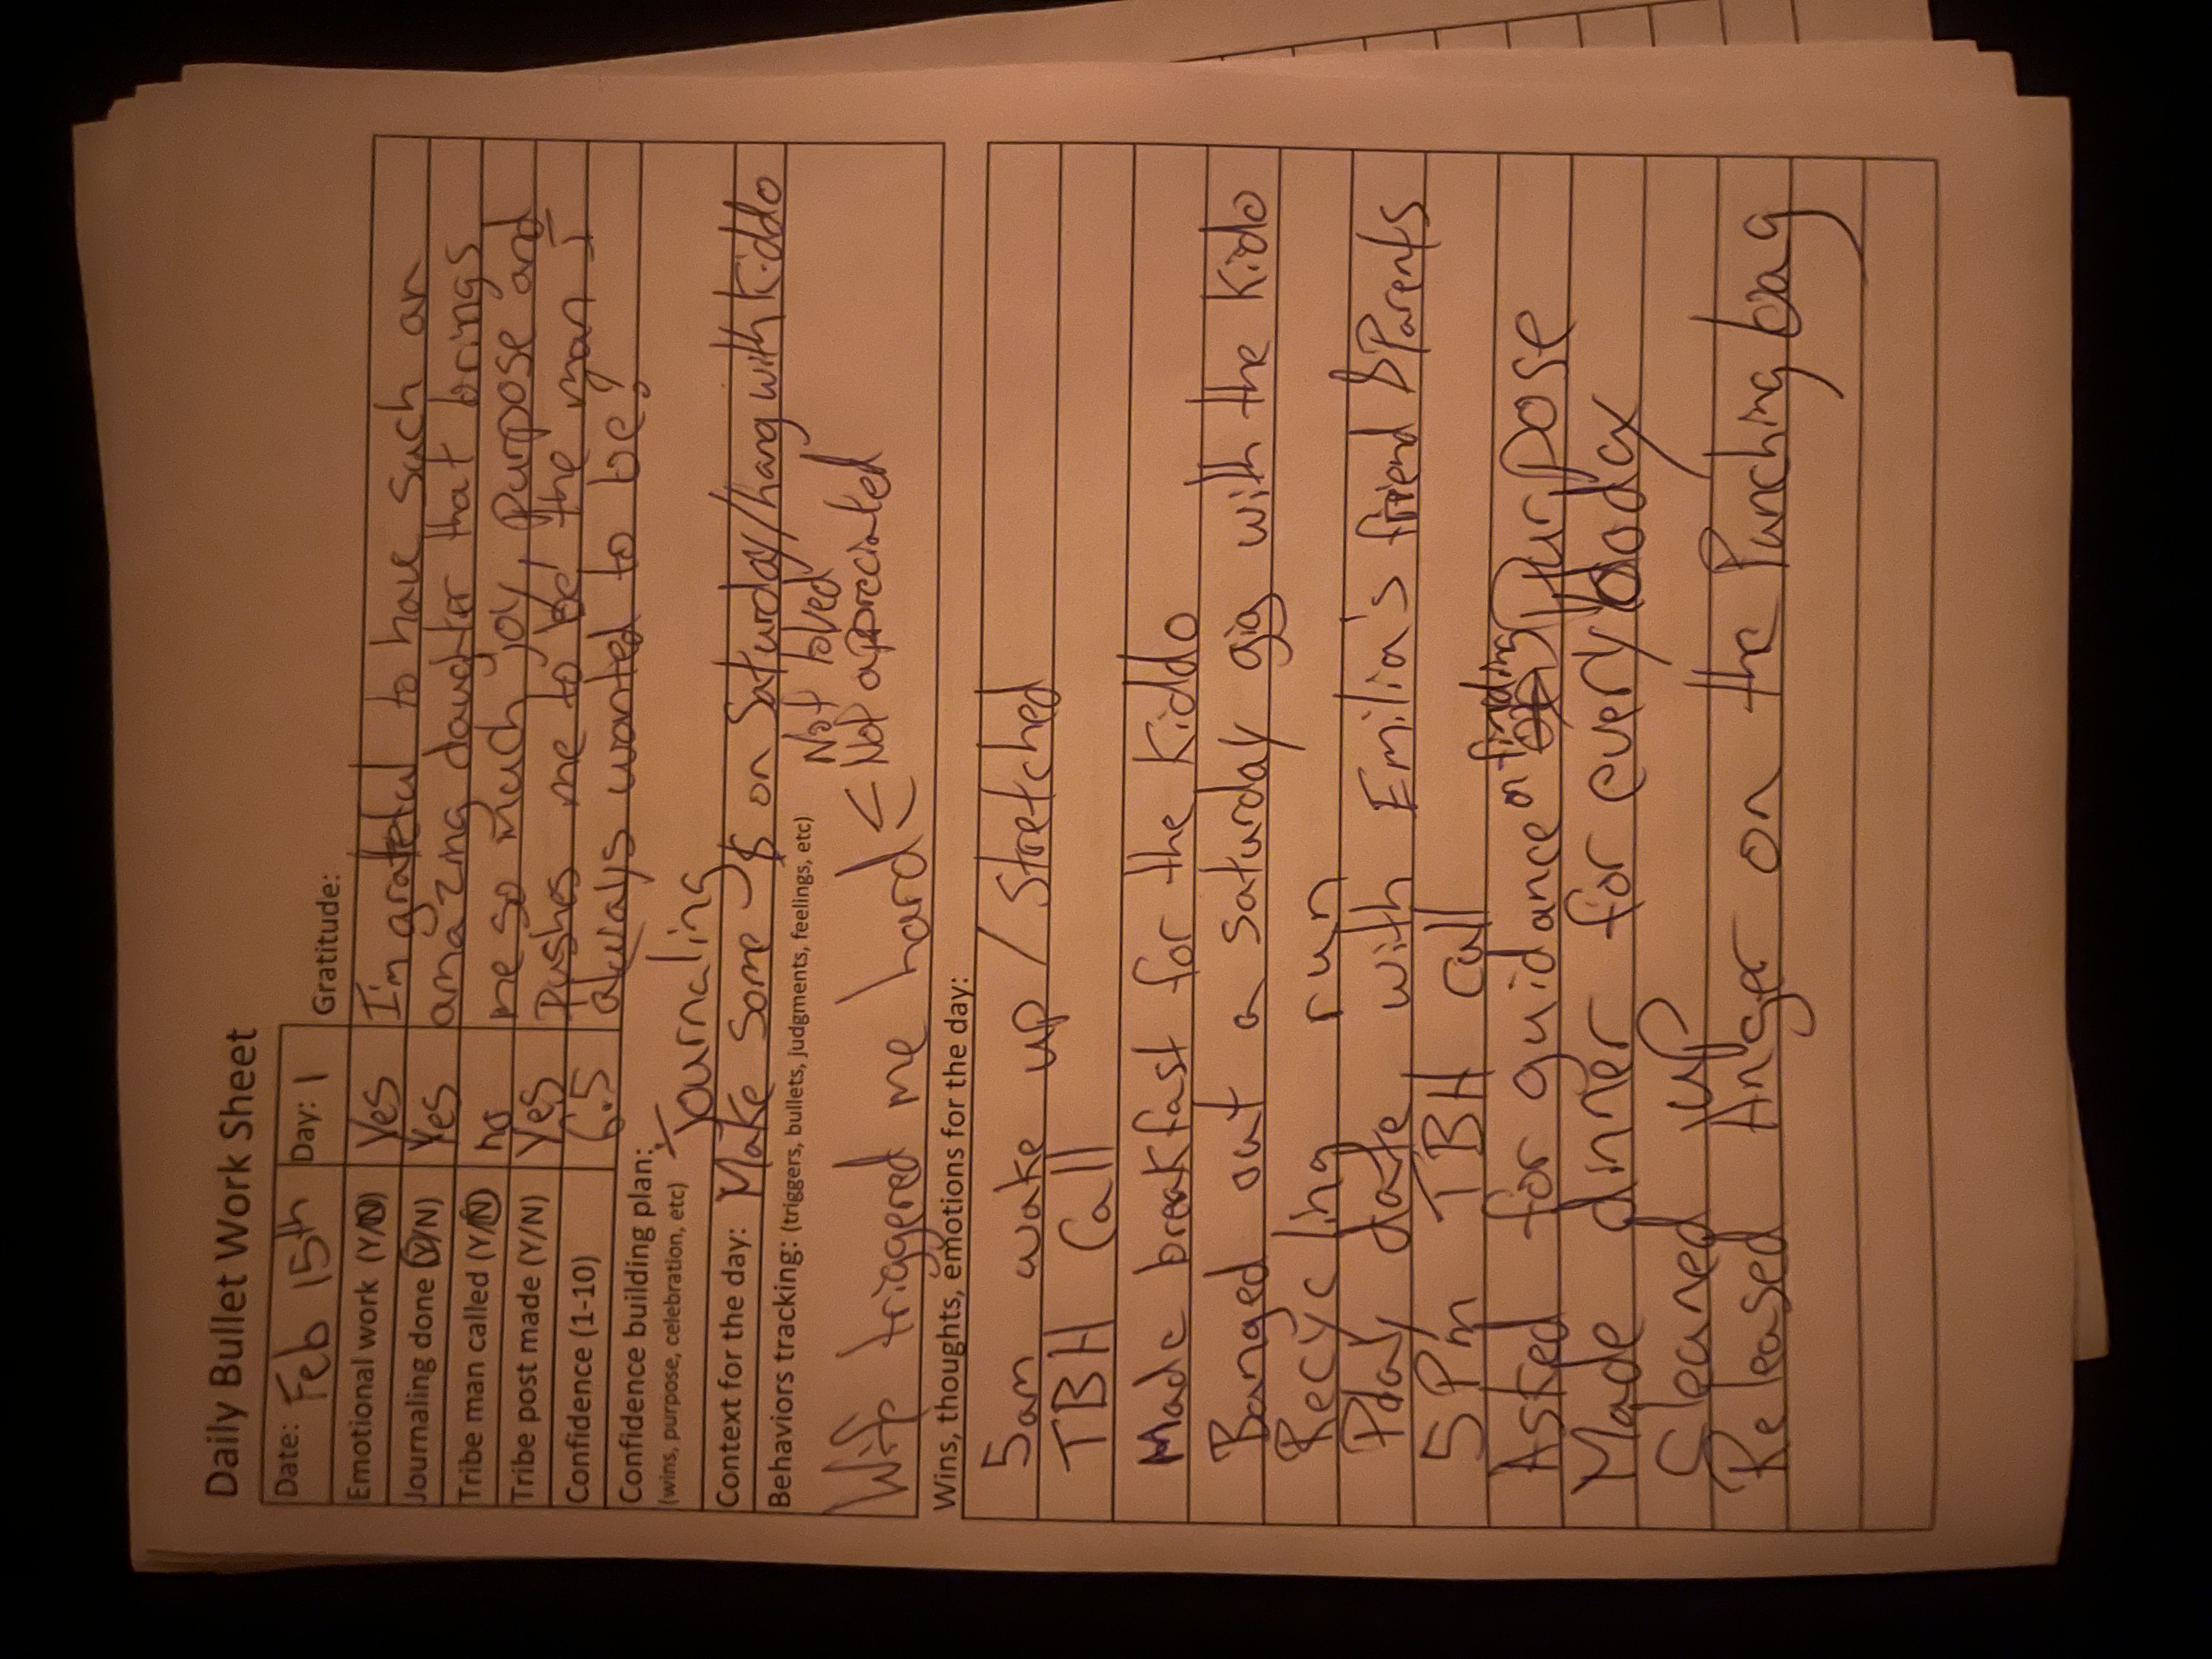 Daily Bullet Work Sheet
Date: Feb 15th Day: 1 Gratitude:
Emotional work (Y/N) Yes I'm grateful to have such an
Journaling done (Y/N) Yes amazing daughter that brings
Tribe man called (Y/N) no me so much joy, Purpose and
Tribe post made (Y/N) Yes Pushes me to be the man I
Confidence (1-10) 6.5 always wanted to be!
Confidence building plan:
(wins, purpose, celebration, etc) Journaling
Context for the day: Make some $ on Saturday/hang with Kiddo
Behaviors tracking: (triggers, bullets, judgments, feelings, etc)
Not loved
Wife triggered me hard < Not appreciated
Wins, thoughts, emotions for the day:
5am wake up / Stretched
TBH Call
Made breakfast for the Kiddo
Banged out a saturday gig with the Kido
Recycling run
Play date with Emilia's friend & Parents
5 Pm TBH Call
Asked for guidance on finding Purpose
Made dinner for everybody
Cleaned up
Released Anger on the Punching bag